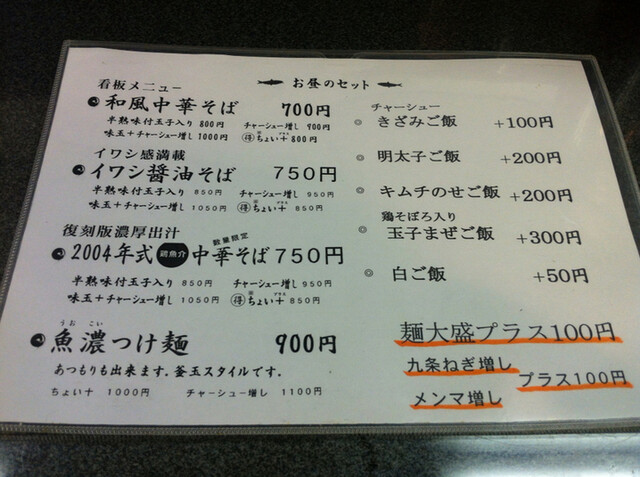 お昼のセット
看板メニュー
和風中華そば 700円
半熟味付玉子入り 800円 チャーシュー増し 900円
味玉+チャーシュー増し 1000円 得 ちょい+ プラス 800円
イワシ感満載
イワシ醤油そば 750円
半熟味付玉子入り 850円 チャーシュー増し 950円
味玉+チャーシュー増し 1050円 得 ちょい+ プラス 850円
復刻版濃厚出汁
数量限定
2004年式 鶏魚介 中華そば 750円
半熟味付玉子入り 850円 チャーシュー増し 950円
味玉+チャーシュー増し 1050円 得 ちょい+ プラス 850円
うお こい
魚濃つけ麺 900円
あつもりも出来ます.釜玉スタイルです.
ちょい+ 1000円 チャーシュー増し 1100円
チャーシュー
◎ きざみご飯 +100円
◎ 明太子ご飯 +200円
◎ キムチのせご飯 +200円
鶏そぼろ入り
◎ 玉子まぜご飯 +300円
◎ 白ご飯 +50円
麺大盛プラス100円
九条ねぎ増し
プラス100円
メンマ増し